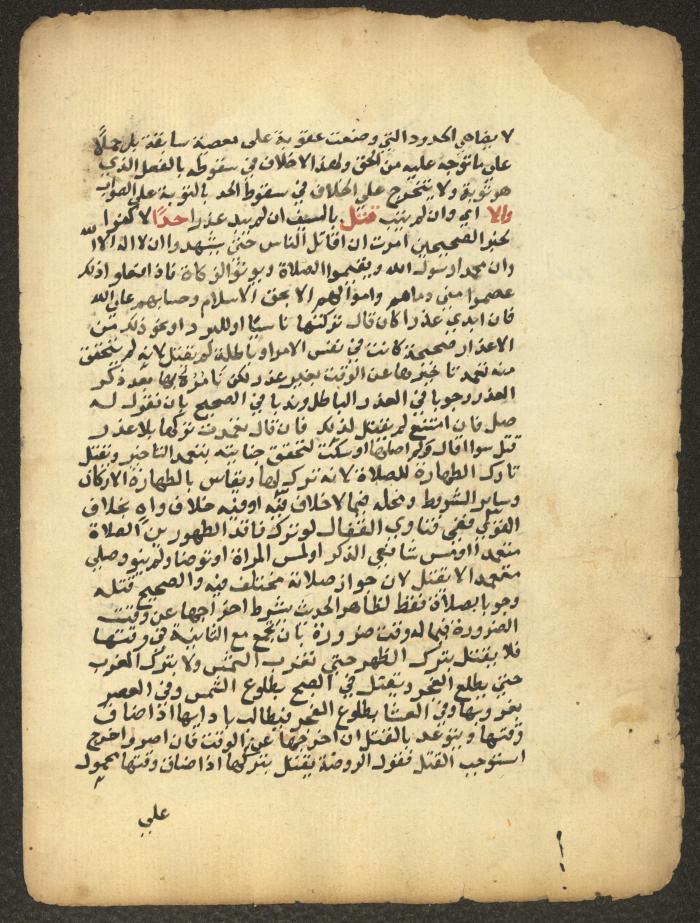 لا يضاهي الحدود التي وضعت عقوبة على معصية سابقة بل حملا
على ما توجه عليه من الحق ولهذا لا خلاف في سقوطه بالفعل الذي
هو توبة ولا يتخرج على الخلاف في سقوط الحد بالتوبة على الصواب
والا اي وان لم يتب قتل بالسيف ان لم يبد عذرا حدا لا كفرا
لخبر الصحيحين امرت ان اقاتل الناس حتى يشهدوا ان لا اله الا الله
وان محمدا رسول الله ويقيموا الصلاة ويوتوا الزكاة فاذا فعلوا ذلك
عصموا مني دماهم واموالهم الا بحق الاسلام وحسابهم على الله
فان ابدي عذرا كان قال تركتها ناسيا او للبرد او نحو ذلك من
الاعذار صحيحة كانت في نفس الامر او باطلة لم يقتل لانه لم يتحقق
منه تعمد تاخيرها عن الوقت بغير عذر لكن نامره بها بعد ذكر
العذر وجوبا في العذر الباطل وندبا في الصحيح بان نقول له
صل فان امتنع لم يقتل لذلك فان قال تعمدت تركها بلا عذر
قتل سوا قال ولم اصلها او سكت لتحقق جنايته بتعمد التاخير ويقتل
تارك الطهارة للصلاة لانه ترك لها ويقاس بالطهارة الاركان
وساير الشروط ومحله فيما لا خلاف فيه او فيه خلاف واه بخلاف
القوي ففي فتاوي القفال لو ترك فاقد الطهورين الصلاة
متعمدا او مس شافعي الذكر او لمس المراة او توضا ولم ينو وصلى
متعمدا لا يقتل لان جواز صلاته مختلف فيه والصحيح قتله
وجوبا بصلاة فقط لظاهر الحديث بشرط اخراجها عن وقت
الضرورة فيما له وقت ضرورة بان تجمع مع الثانية في وقتها
فلا يقتل بترك الظهر حتى تغرب الشمس ولا بترك المغرب
حتى يطلع الفجر ويقتل في الصبح بطلوع الشمس وفي العصر
بغروبها وفي العشا بطلوع الفجر فيطالب بادايها اذا ضاق
وقتها ويتوعد بالقتل ان اخرجها عن الوقت فان اصر واخرج
استوجب القتل فقول الروضة يقتل بتركها اذا ضاق وقتها محمول
على